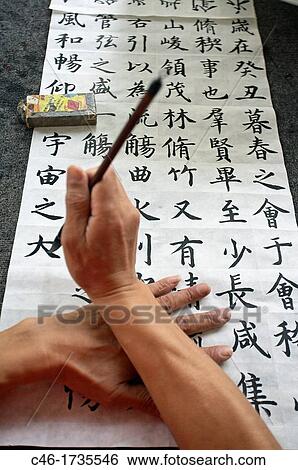 歲在癸丑暮春之會于會
脩稧事也羣賢畢至少長咸集
山峻領茂林脩竹又有清
右引以為流觴曲水列
弦之盛一觴
風和暢仰宇宙之大
fotosearch®
c46-1735546 www.fotosearch.com